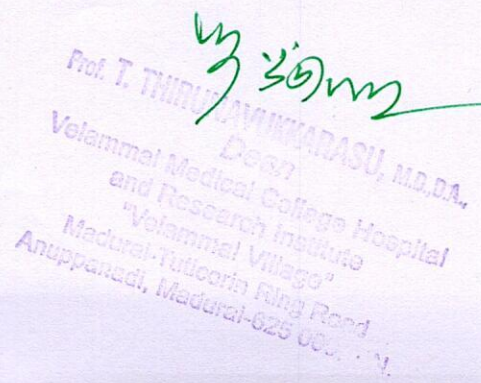 Prof. T. THIRUNAVUKKARASU, M.D.,D.A.,
Dean
Velammal Medical College Hospital
and Research Institute
"Velammal Village"
Madurai-Tuticorin Ring Road
Anuppanadi, Madurai-625